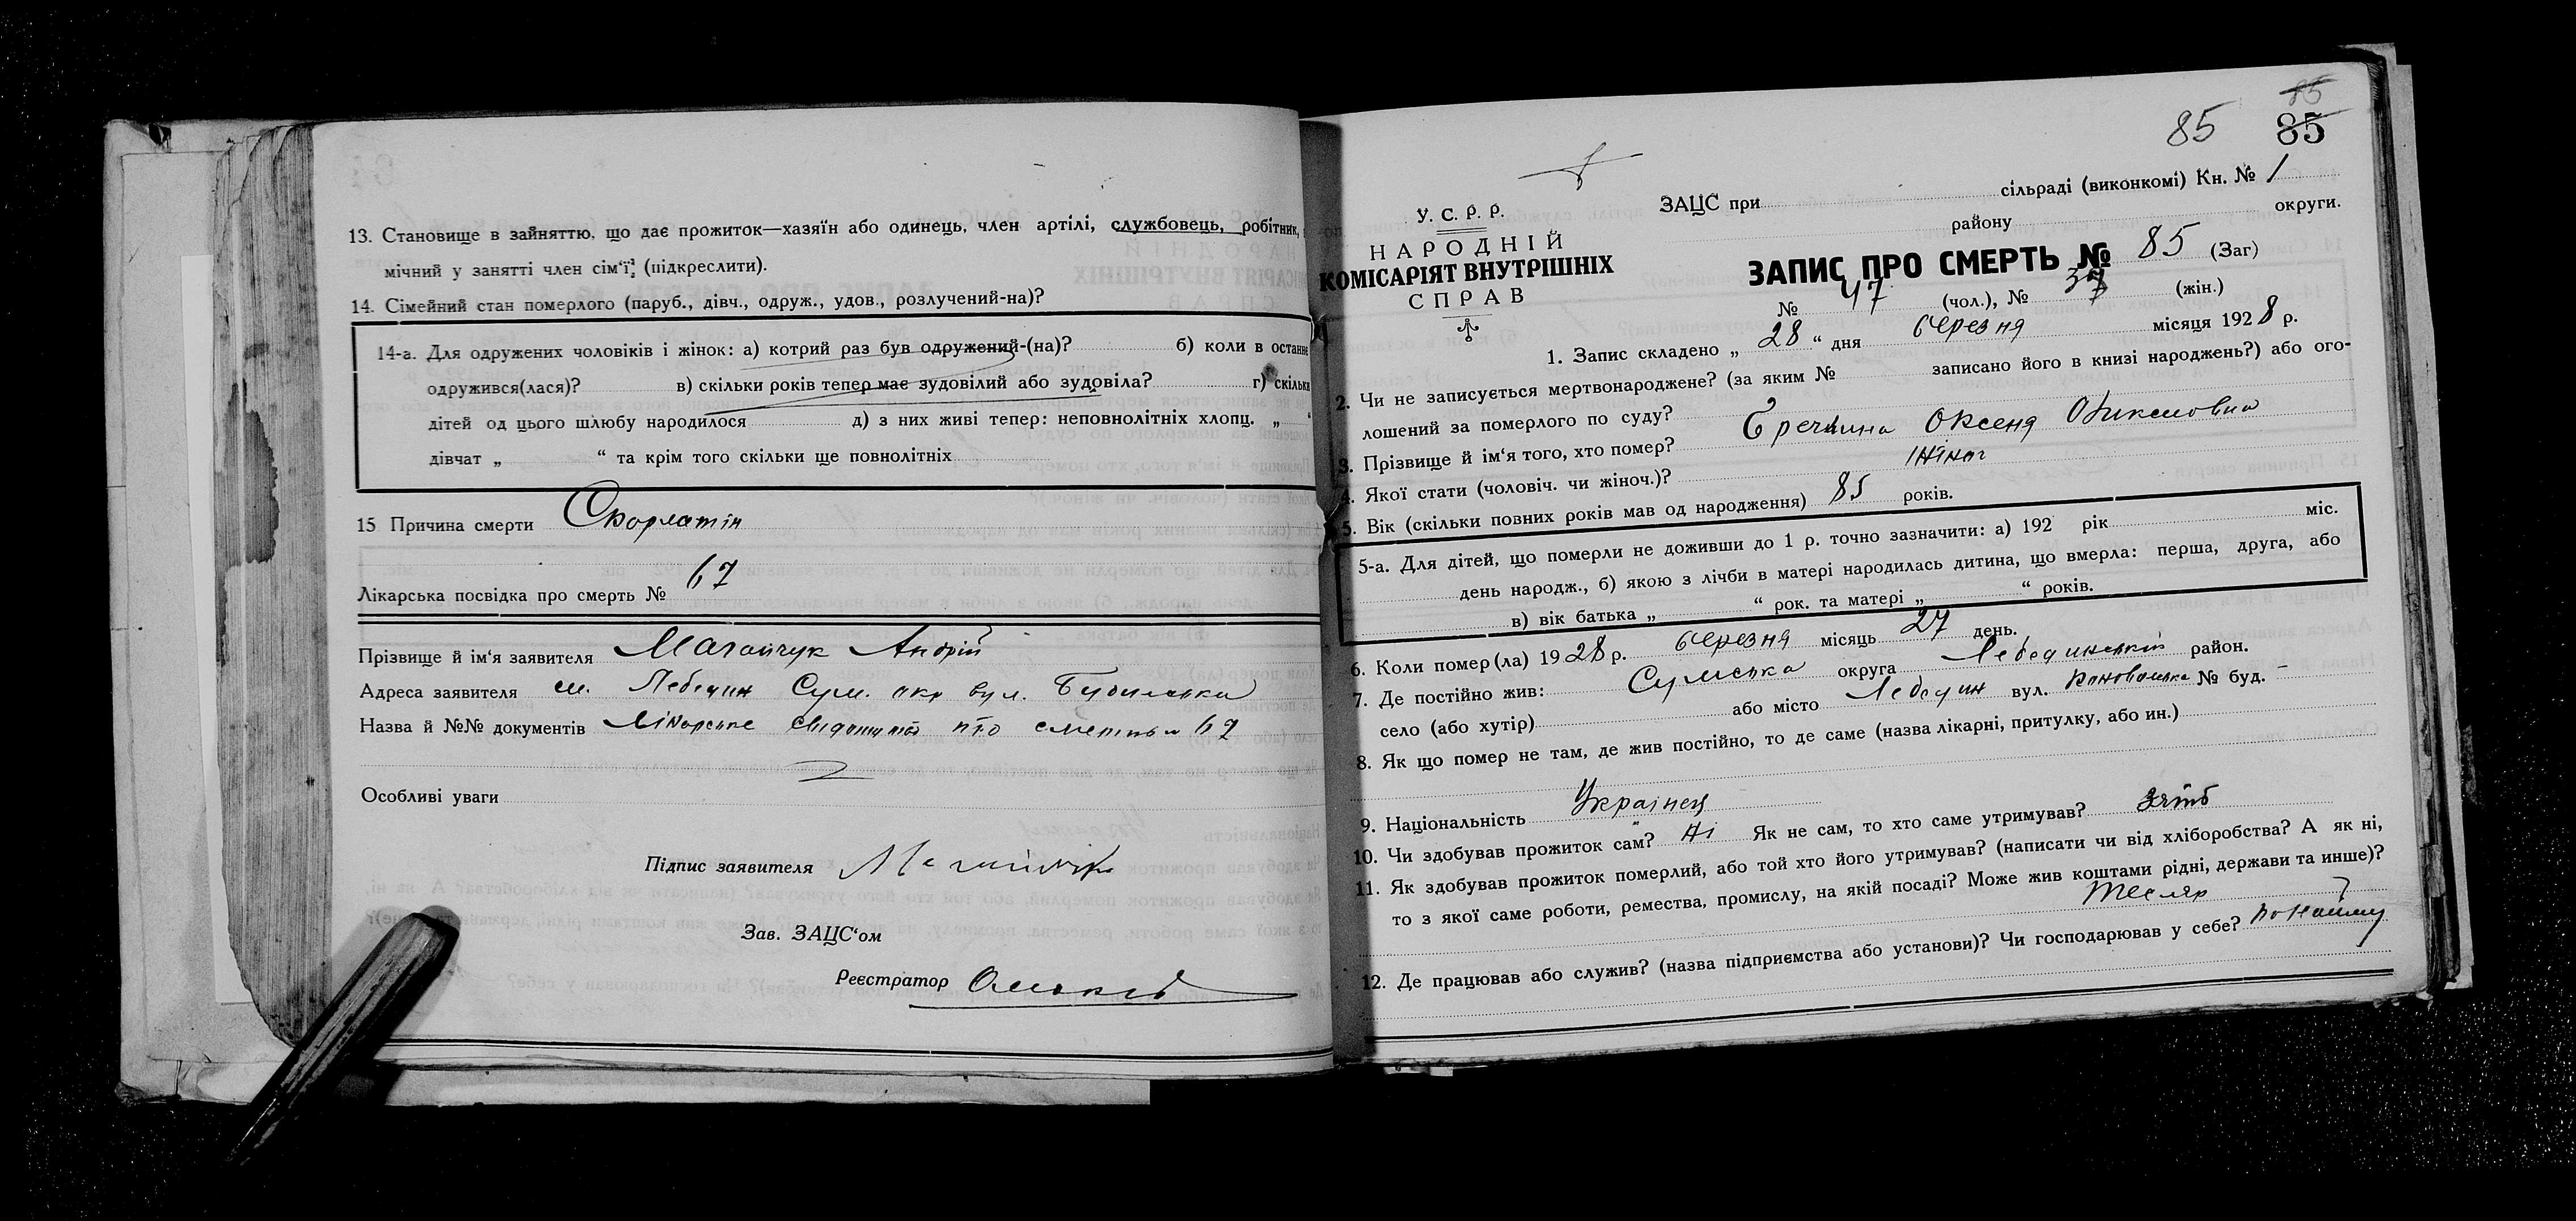 13. Становище в зайняттю, що дає прожиток—хазяїн або одинець, член артілі, службовець, робітник,
мічний у занятті член сім'ї, (підкреслити).
14. Сімейний стан померлого (паруб., дівч., одруж., удов., розлучений-на)?
14-а. Для одружених чоловіків і жінок: а) котрий раз був одружений-(на)? б) коли в останнє
одружився(лася)? в) скільки років тепер має зудовілий або зудовіла? г) скільки
дітей од цього шлюбу народилося д) з них живі тепер: неповнолітніх хлопц. „
дівчат „ “ та крім того скільки ще повнолітніх
15 Причина смерти Скорлатін
Лікарська посвідка про смерть № 67
Прізвище й ім'я заявителя Андрій
Адреса заявителя м. Лебедин Сум. окр вул.
Назва й №№ документів Лікарське про 67
Особливі уваги
Підпис заявителя
Зав. ЗАЦС'ом
Реєстратор
85 85
85
ЗАЦС при сільраді (виконкомі) Кн. № 1
району округи.
У. С. Р. Р.
НАРОДНІЙ
КОМІСАРІЯТ ВНУТРІШНІХ
СПРАВ
ЗАПИС ПРО СМЕРТЬ № 85 (Заг)
№ 47 (чол.), № 37 (жін.)
1. Запис складено „ 28 “ дня березня місяця 1928 р.
2. Чи не записується мертвонароджене? (за яким № записано його в книзі народжень?) або ого-
лошений за померлого по суду?
3. Прізвище й ім'я того, хто помер? Оксеня
4. Якої стати (чоловіч. чи жіноч.)? жіноч
5. Вік (скільки повних років мав од народження) 85 років.
5-а. Для дітей, що померли не доживши до 1 р. точно зазначити: а) 192 рік міс.
день народж., б) якою з лічби в матері народилась дитина, що вмерла: перша, друга, або
в) вік батька „ “ рок. та матері „ “ років.
6. Коли помер(ла) 1928 р. березня місяць 27 день.
7. Де постійно жив: Сумська округа Лебединський район.
село (або хутір) або місто Лебедин вул. № буд. –
8. Як що помер не там, де жив постійно, то де саме (назва лікарні, притулку, або ин.)
9. Національність Українец
10. Чи здобував прожиток сам? Ні Як не сам, то хто саме утримував? зять
11. Як здобував прожиток померлий, або той хто його утримував? (написати чи від хліборобства? А як ні,
то з якої саме роботи, ремества, промислу, на якій посаді? Може жив коштами рідні, держави та инше)?
тесляр
12. Де працював або служив? (назва підприємства або установи)? Чи господарював у себе? по найму